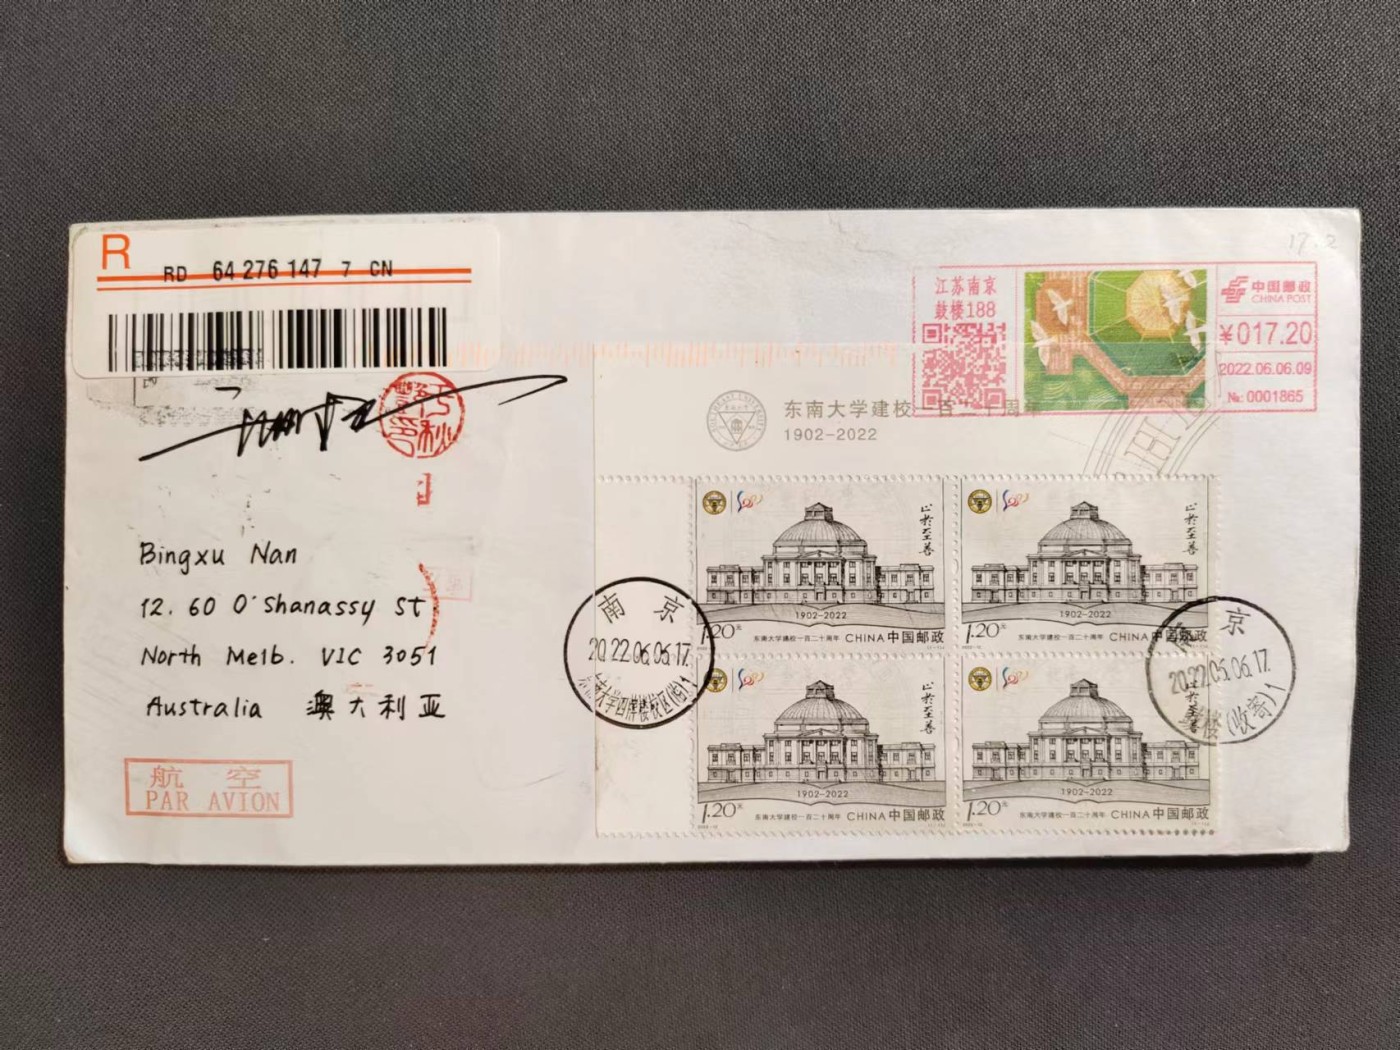 R
RD 64 276 147 7 CN
Bingxu Nan
12. 60 O'Shanassy St
North Melb. VIC 3051
Australia 澳大利亚
航空
PAR AVION
17.2
江苏南京
鼓楼188
中国邮政
CHINA POST
¥017.20
2022.06.06.09
№: 0001865
东南大学建校一百二十周年
1902-2022
止于至善
1902-2022
1.20元
东南大学建校一百二十周年 CHINA中国邮政
止于至善
1902-2022
1.20元
东南大学建校一百二十周年 CHINA中国邮政
止于至善
1902-2022
1.20元
东南大学建校一百二十周年 CHINA中国邮政
止于至善
1902-2022
1.20元
东南大学建校一百二十周年 CHINA中国邮政
南京
2022.06.06.17
东南大学四牌楼校区
南京
2022.06.06.17
(收寄)1